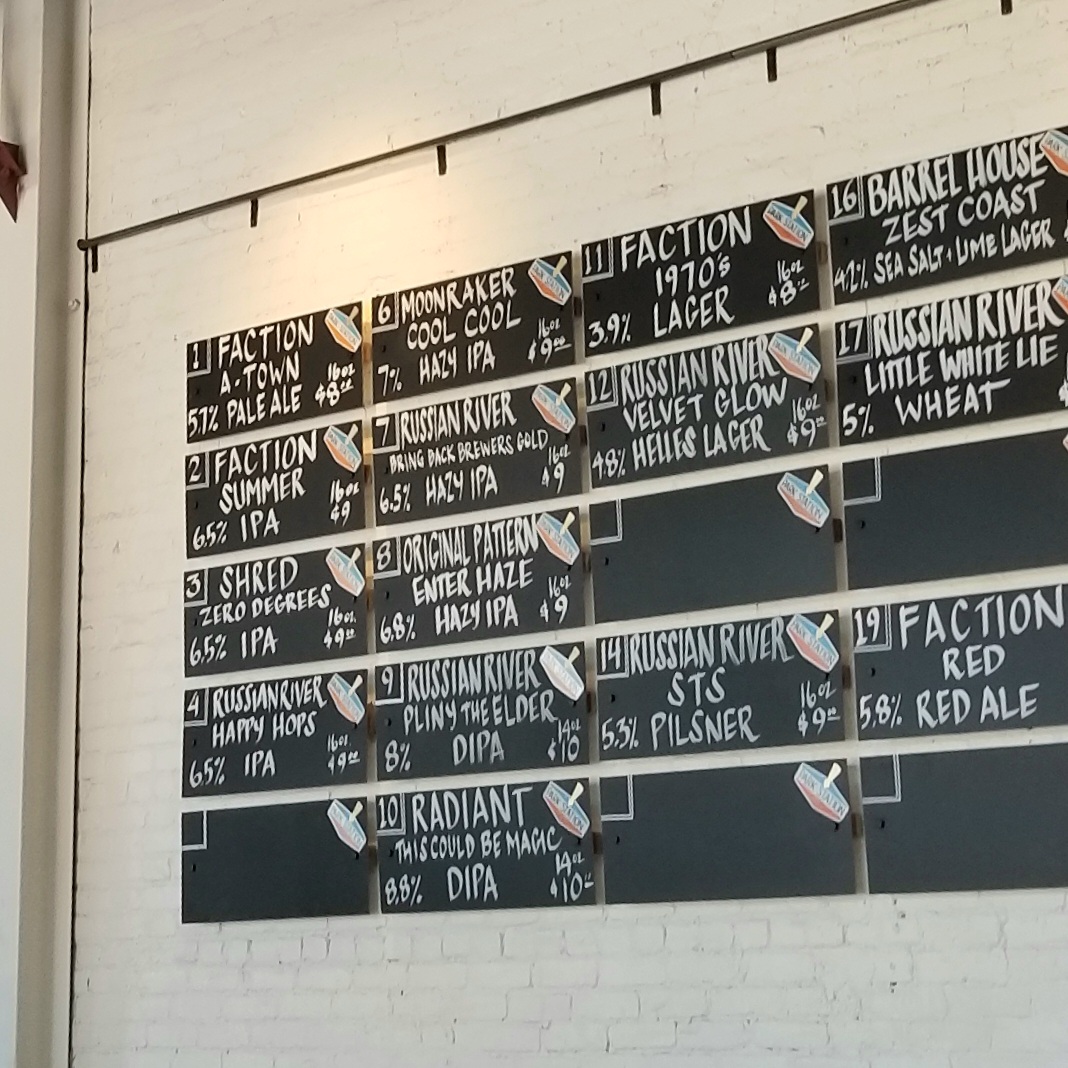 1 FACTION
A-TOWN
5.7% PALE ALE
16oz
$8.00
2 FACTION
SUMMER
6.5% IPA
16oz
$9
3 SHRED
ZERO DEGREES
6.5% IPA
16oz
$9.00
4 RUSSIAN RIVER
HAPPY HOPS
6.5% IPA
16oz
$9.00
6 MOONRAKER
COOL COOL
7% HAZY IPA
16oz
$9.00
7 RUSSIAN RIVER
BRING BACK BREWERS GOLD
6.5% HAZY IPA
16oz
$9
8 ORIGINAL PATTERN
ENTER HAZE
6.8% HAZY IPA
16oz
$9
9 RUSSIAN RIVER
PLINY THE ELDER
8% DIPA
14oz
$10
10 RADIANT
THIS COULD BE MAGIC
8.8% DIPA
14oz
$10
11 FACTION
1970's
3.9% LAGER
16oz
$8
12 RUSSIAN RIVER
VELVET GLOW
4.8% HELLES LAGER
16oz
$9
14 RUSSIAN RIVER
STS
5.3% PILSNER
16oz
$9.00
16 BARREL HOUSE
ZEST COAST
4.2% SEA SALT + LIME LAGER
17 RUSSIAN RIVER
LITTLE WHITE LIE
5% WHEAT
19 FACTION
RED
5.8% RED ALE